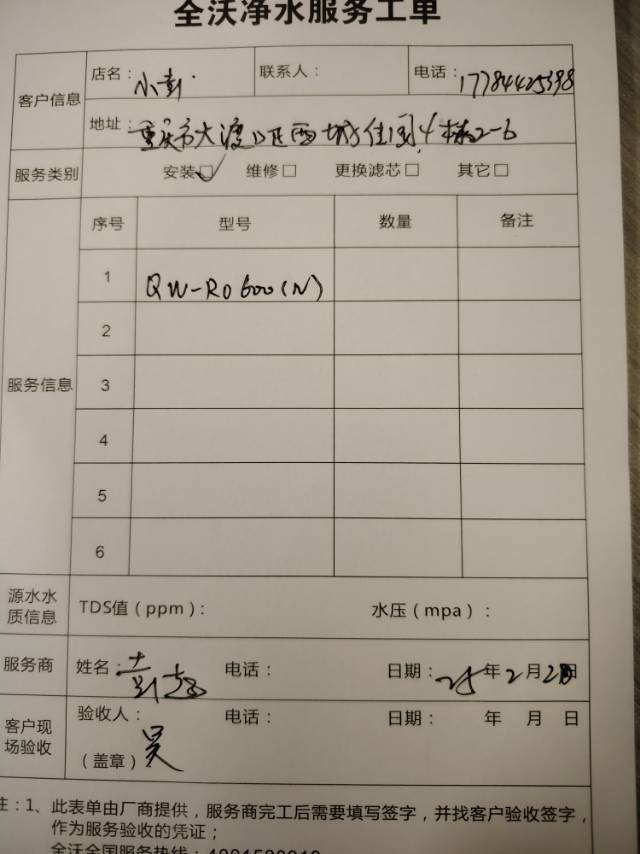 全沃净水服务工单
客户信息 店名：小彭 联系人： 电话：17784425398
地址：重庆市大渡口区西城佳园4栋2-6
服务类别 安装☑ 维修□ 更换滤芯□ 其它□
服务信息 序号 型号 数量 备注
1 QW-RO600(N)
2
3
4
5
6
源水水质信息 TDS值（ppm）： 水压（mpa）：
服务商 姓名： 电话： 日期：25年2月2日
客户现场验收 验收人：吴 电话： 日期： 年 月 日
（盖章）
注：1、此表单由厂商提供，服务商完工后需要填写签字，并找客户验收签字，
作为服务验收的凭证；
全沃全国服务热线：